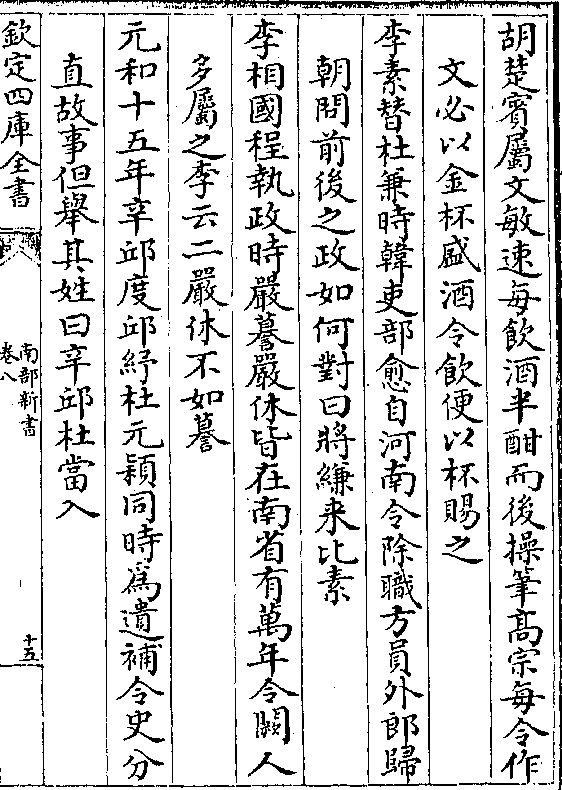 胡楚賓屬文敏速每飲酒半酣而後操筆高宗每令作
文必以金杯盛酒令飲便以杯賜之
李素替杜兼時韓吏部愈自河南令除職方員外郎歸
朝問前後之政如何對曰將縑来比素
李相國程執政時嚴謩嚴休皆在南省有萬年令闕人
多屬之李云二嚴休不如謩
元和十五年辛邱度邱紓杜元穎同時為遺補令史分
直故事但舉其姓曰辛邱杜當入
欽定四庫全書
南部新書
卷八
十五